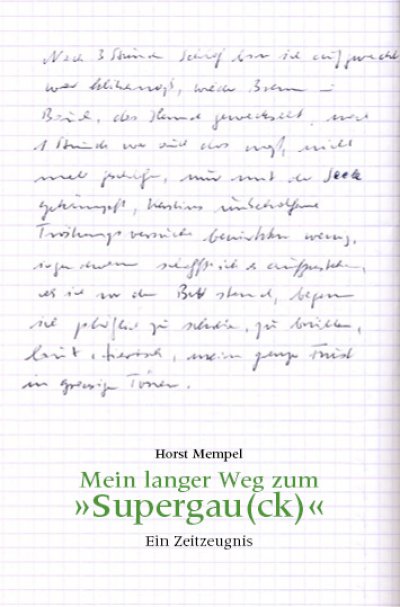 Nach 3 Stunden Schlaf bin ich aufgewacht
war klitschnaß, wieder Brennen im
Bauch, das Hemd gewechselt, nach
1 Stunde war auch das naß, nicht
mehr geschlafen, nur mit der Seele
gekämpft, unbeholfene
Tröstungsversuche bewirkten wenig,
irgendwann schaffte ich es aufzustehen,
als ich vor dem Bett stand, begann
ich plötzlich zu schreien, zu brüllen,
laut, tierisch, mein ganzer Frust
in grausigen Tönen.
Horst Mempel
Mein langer Weg zum
»Supergau(ck)«
Ein Zeitzeugnis